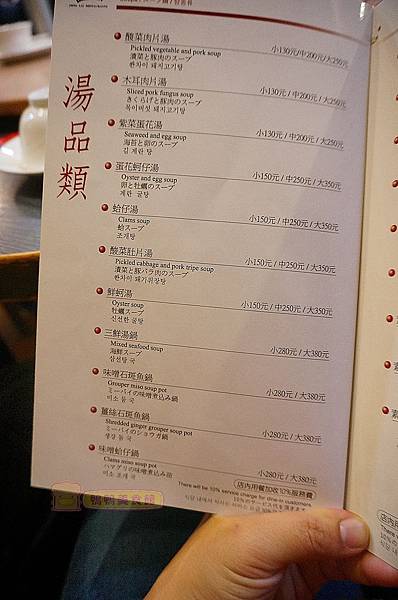 湯品類
酸菜肉片湯
Pickled vegetable and pork soup
漬菜と豚肉のスープ
小130元/中200元/大250元
木耳肉片湯
Sliced pork fungus soup
きくらげと豚肉のスープ
小130元 / 中200元 / 大250元
紫菜蛋花湯
Seaweed and egg soup
海苔と卵のスープ
김 계란 탕
小130元 / 中200元 / 大250元
蛋花蚵仔湯
Oyster and egg soup
卵と牡蠣のスープ
계란 굴탕
小150元 / 中250元 / 大350元
蛤仔湯
Clams soup
蛤スープ
조개탕
小150元 / 中250元 / 大350元
酸菜肚片湯
Pickled cabbage and pork tripe soup
漬菜と豚バラ肉のスープ
小150元 / 中250元 / 大350元
鮮蚵湯
Oyster soup
牡蠣スープ
신선한 굴탕
小150元 / 中250元 / 大350元
三鮮湯鍋
Mixed seafood soup
海鮮スープ
삼선탕 국
小280元 / 大380元
味噌石斑魚鍋
Grouper miso soup pot
ミーバイの味噌煮込み鍋
小280元 / 大380元
薑絲石斑魚鍋
Shredded ginger grouper soup pot
ミーバイのショウガ鍋
小280元 / 大380元
味噌蛤仔鍋
Clams miso soup pot
ハマグリの味噌煮込み鍋
미소 조개 국
小280元 / 大380元
店內用餐加收10%服務費
There will be 10% service charge for dine-in customers.